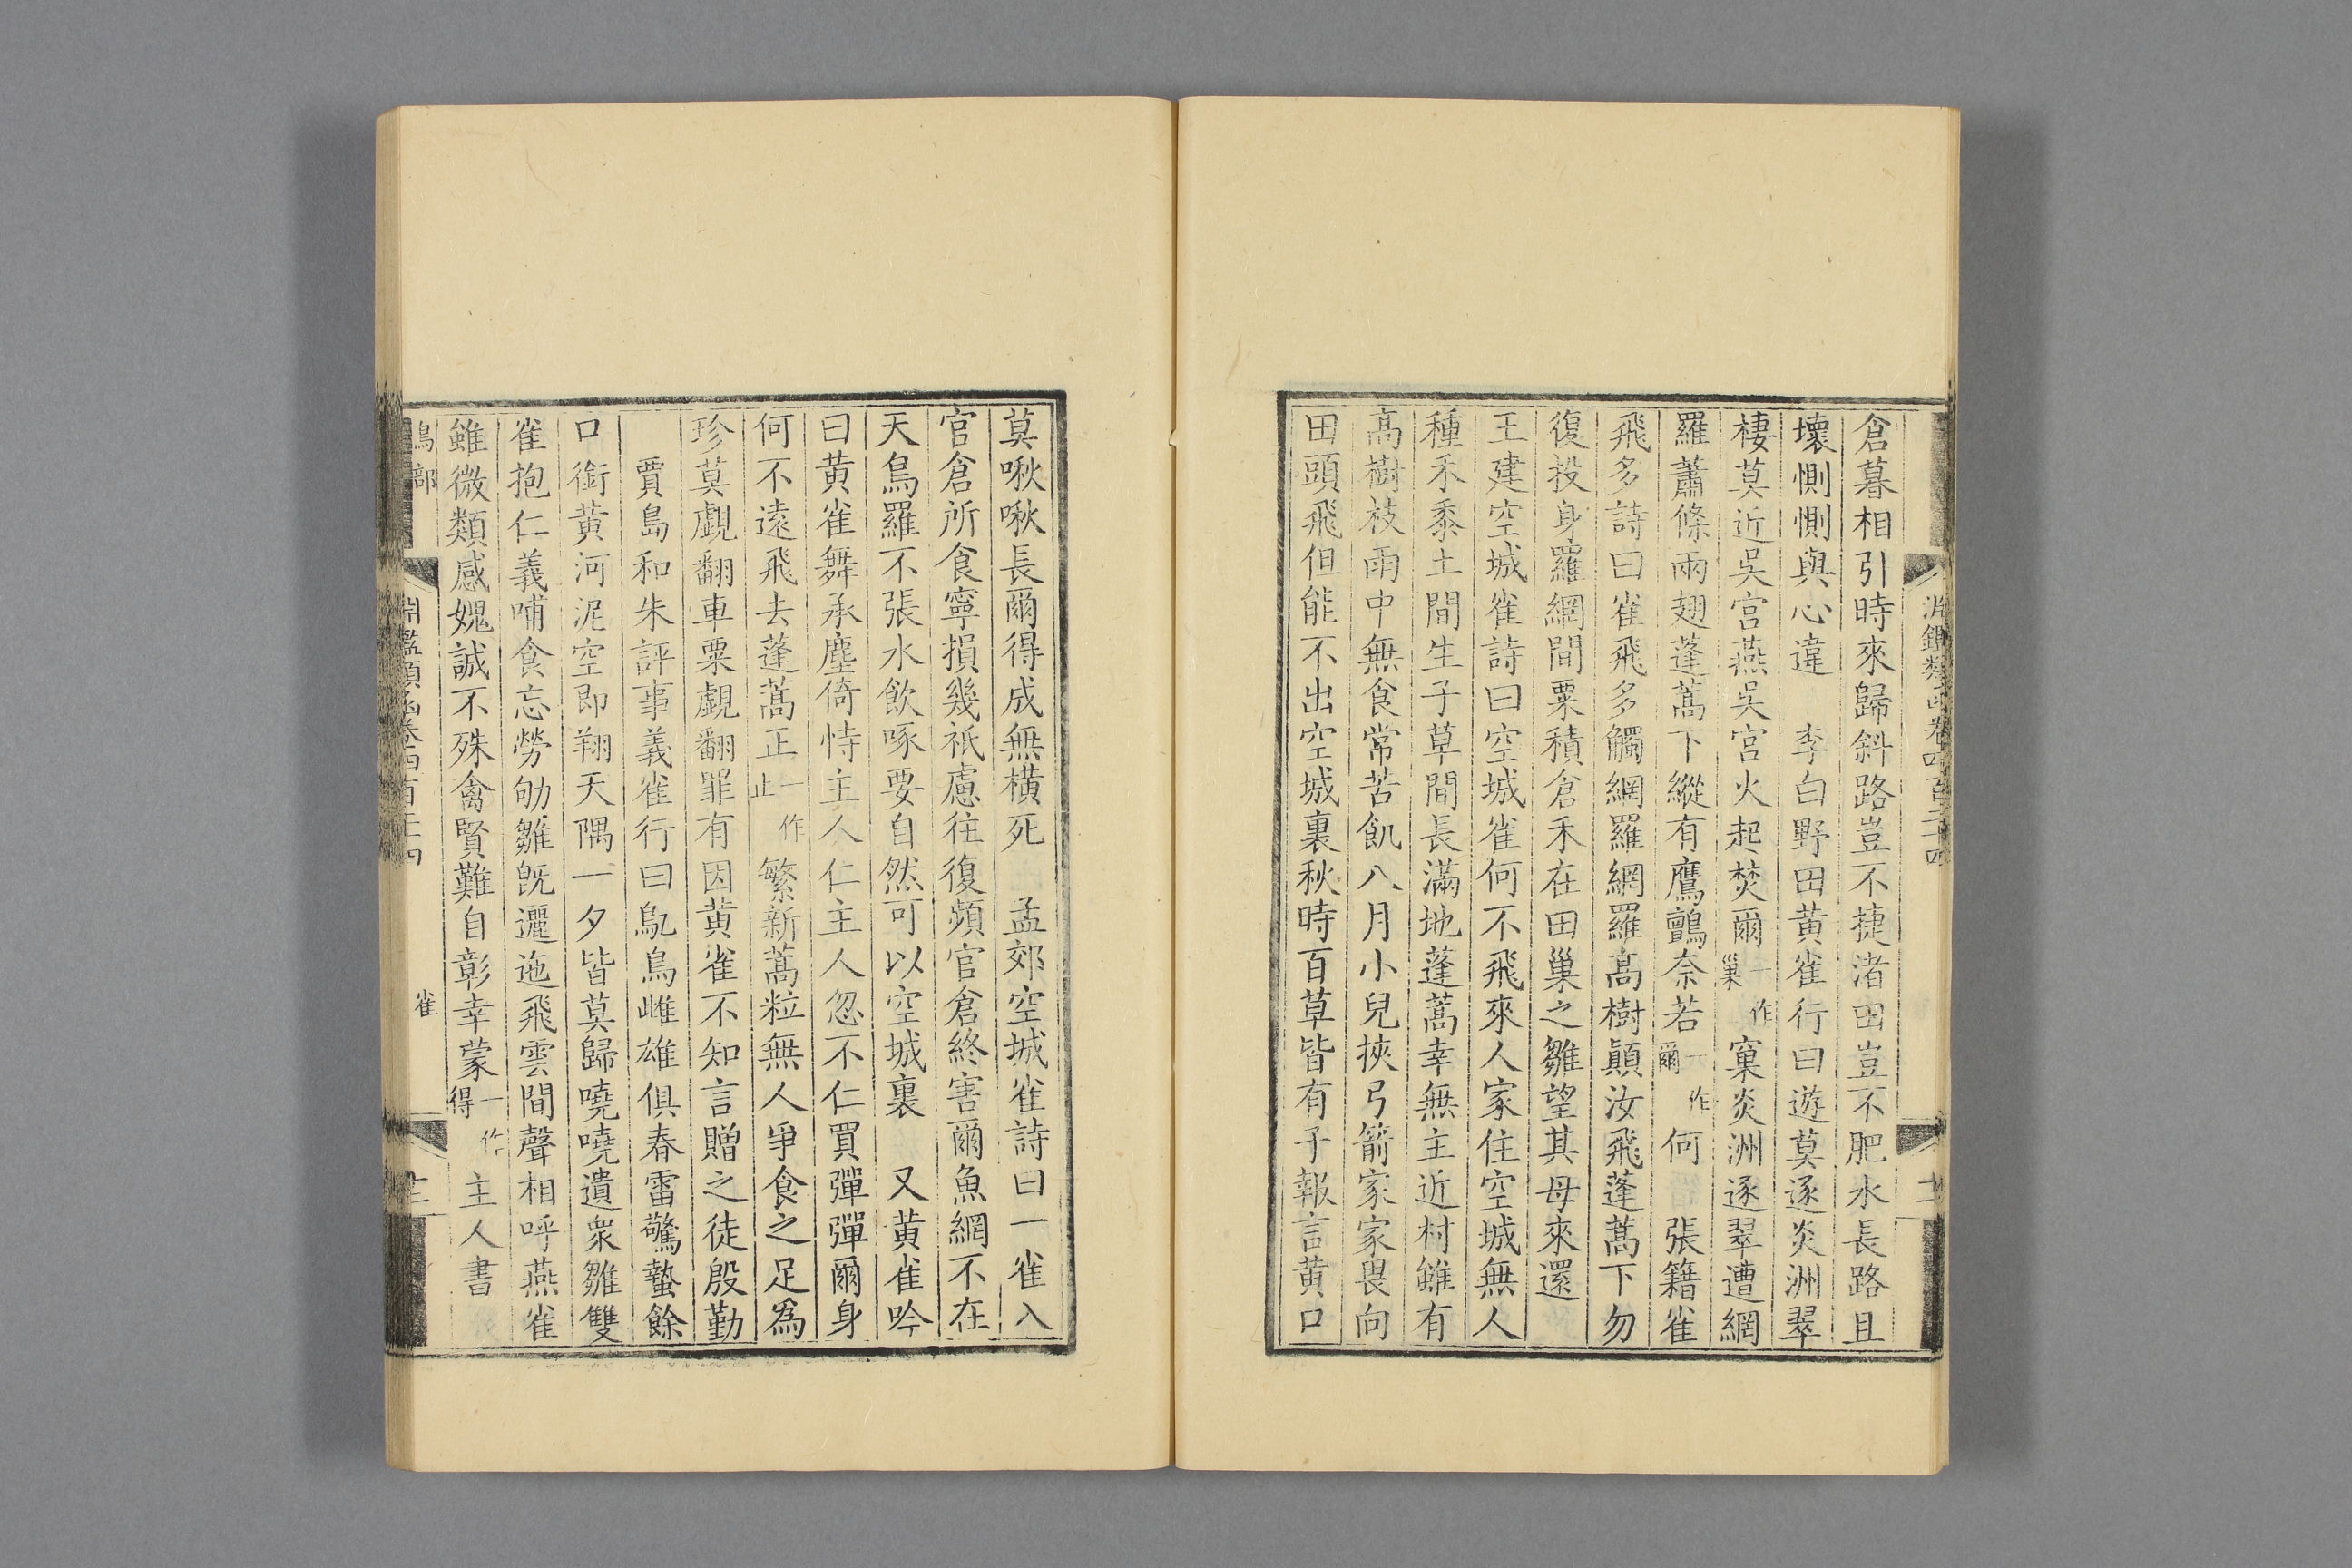 倉暮相引時來歸斜路豈不捷渚田豈不肥水長路且
壞惻惻與心違　李白野田黄雀行曰遊莫逐炎洲翠
棲莫近吳宮燕吳宮火起焚爾一作巢窠炎洲逐翠遭網
羅蕭條兩翅蓬蒿下縱有鷹鸇奈若一作爾何　張籍雀
飛多詩曰雀飛多觸網羅網羅高樹顚汝飛蓬蒿下勿
復投身羅網間粟積倉禾在田巢之雛望其母來還
王建空城雀詩曰空城雀何不飛來人家住空城無人
種禾黍土間生子草間長滿地蓬蒿幸無主近村雖有
高樹枝雨中無食常苦飢八月小兒挾弓箭家家畏向
田頭飛但能不出空城裏秋時百草皆有子報言黄口
莫啾啾長爾得成無橫死　孟郊空城雀詩曰一雀入
官倉所食寧損幾祇慮往復頻官倉終害爾魚網不在
天鳥羅不張水飲啄要自然可以空城裏　又黄雀吟
曰黄雀舞承塵倚恃主人仁主人忽不仁買彈彈爾身
何不遠飛去蓬蒿正一作止繁新蒿粒無人爭食之足爲
珍莫覷翻車粟覷翻罪有因黄雀不知言贈之徒殷勤
賈島和朱評事義雀行曰鳦鳥雌雄俱春雷驚蟄餘
口銜黄河泥空即翔天隅一夕皆莫歸嘵嘵遺衆雛雙
雀抱仁義哺食忘勞劬雛旣邐迤飛雲間聲相呼燕雀
雖微類感媿誠不殊禽賢難自彰幸蒙一作得主人書
鳥部
淵鑑類函卷四百二十四
雀